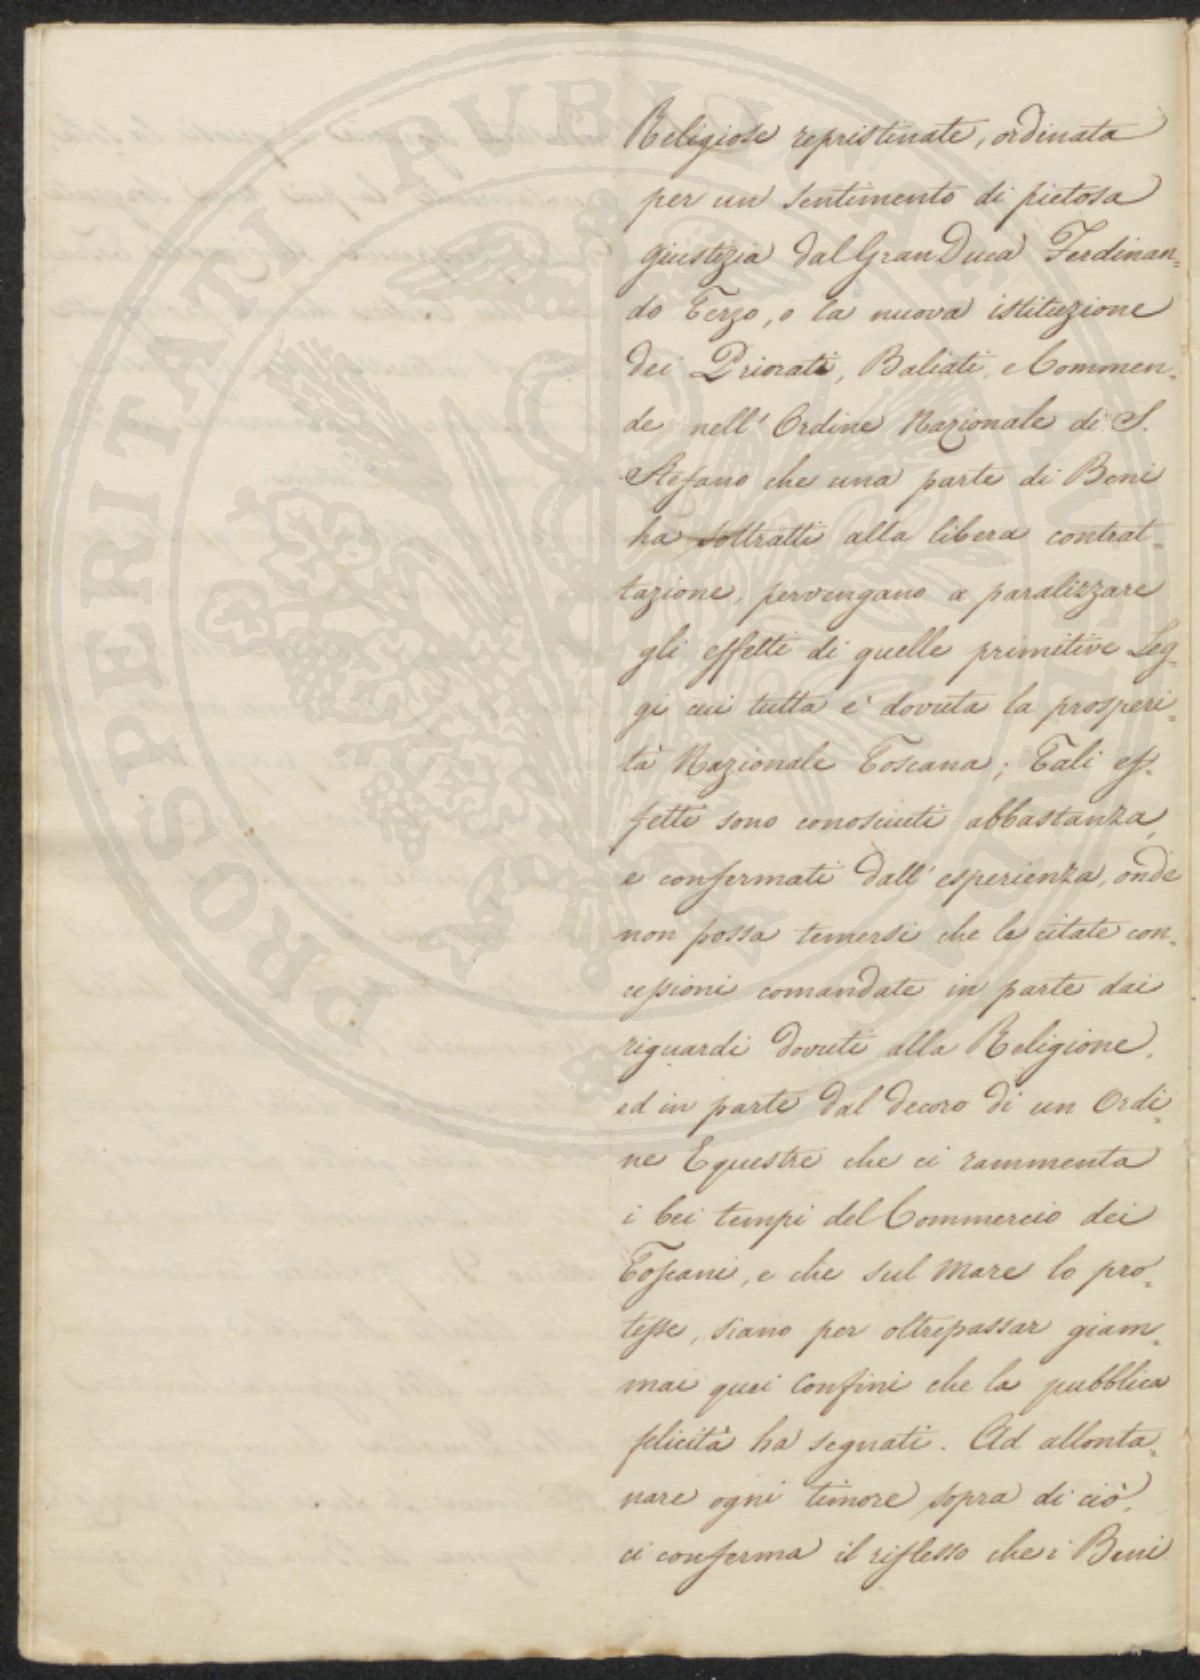 Religiose repristinate, ordinata
per un sentimento di pietosa
giustizia dal Gran Duca Ferdinan=
do Terzo, o la nuova istituzione
dei Priorati, Baliati, e Commen=
de nell' Ordine Nazionale di S.
Stefano che una parte di Beni
ha sottratti alla libera contrat=
tazione, pervengano a paralizzare
gli effetti di quelle primitive Leg=
gi cui tutta e' dovuta la prosperi=
tà Nazionale Toscana; Tali ef=
fetti sono conosciuti abbastanza,
e confermati dall' esperienza, onde
non possa temersi che le citate con=
cessioni comandate in parte dai
riguardi dovuti alla Religione,
ed in parte dal decoro di un Ordi=
ne Equestre che ci rammenta
i bei tempi del Commercio dei
Toscani, e che sul mare lo pro=
tesse, siano per oltrepassar giam=
mai quei Confini che la pubblica
felicità ha segnati. Ad allonta=
nare ogni timore sopra di ciò,
ci conferma il riflesso che i Beni
PROSPERITATI PUBLICAE